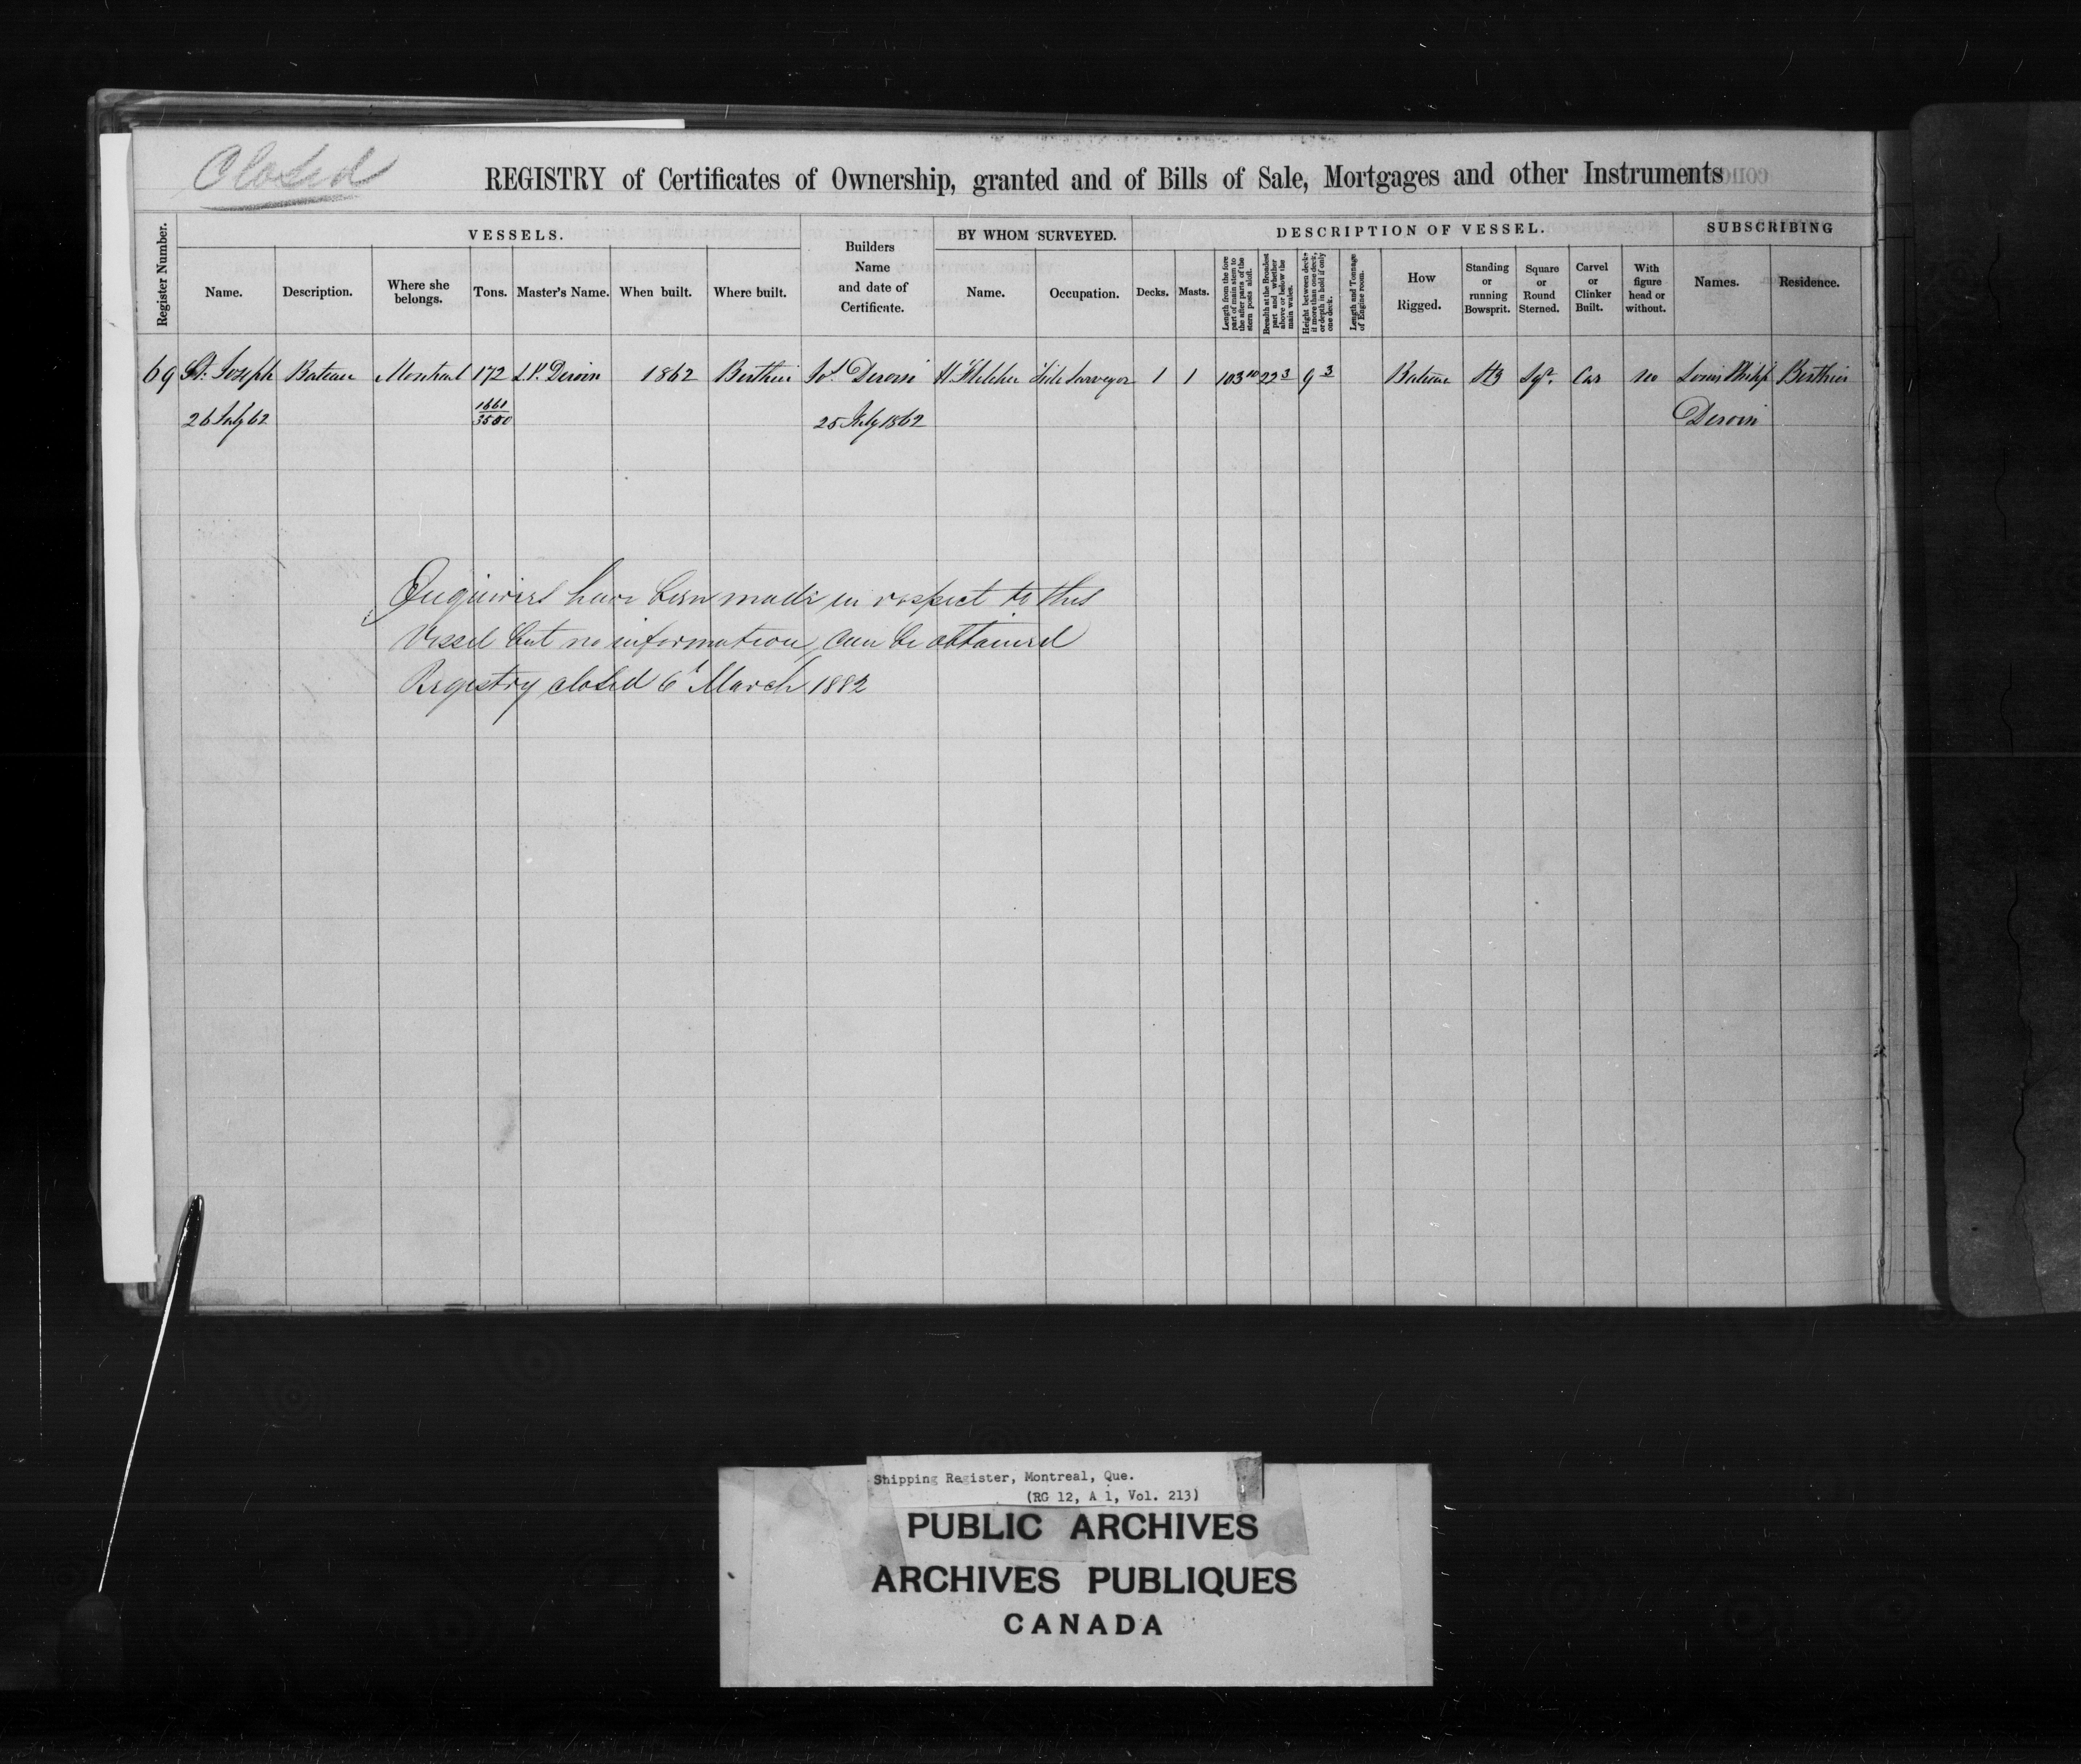 Closed
REGISTRY of Certificates of Ownership, granted and of Bills of Sale, Mortgages and other Instruments
Register Number.
VESSELS.
Name.
Description.
Where she belongs.
Tons.
Master's Name.
When built.
Where built.
Builders Name and date of Certificate.
BY WHOM SURVEYED.
Name.
Occupation.
DESCRIPTION OF VESSEL.
Decks.
Masts.
Length from the fore part of main stem to the after parts of the stern posts aloft.
Breadth at the Broadest part and whether above or below the main wales.
Height between decks if more than one deck, or depth in hold if only one deck.
Length and Tonnage of Engine room.
How Rigged.
Standing or running Bowsprit.
Square or Round Sterned.
Carvel or Clinker Built.
With figure head or without.
SUBSCRIBING
Names.
Residence.
69 St. Joseph Bateau Montreal 172 L.P. Deroin 1862 Berthier Jos. Deroin H. Fletcher Tide Surveyor 1 1 103 10 22 3 9 3 Bateau Sqr. Car no Louis Philip Berthier
26 July 62 1661/3500 25 July 1862 Deroin
Enquiries have been made in respect to this
Vessel but no information can be obtained
Registry closed 6t March 1882
Shipping Register, Montreal, Que.
(RG 12, A 1, Vol. 213)
PUBLIC ARCHIVES
ARCHIVES PUBLIQUES
CANADA